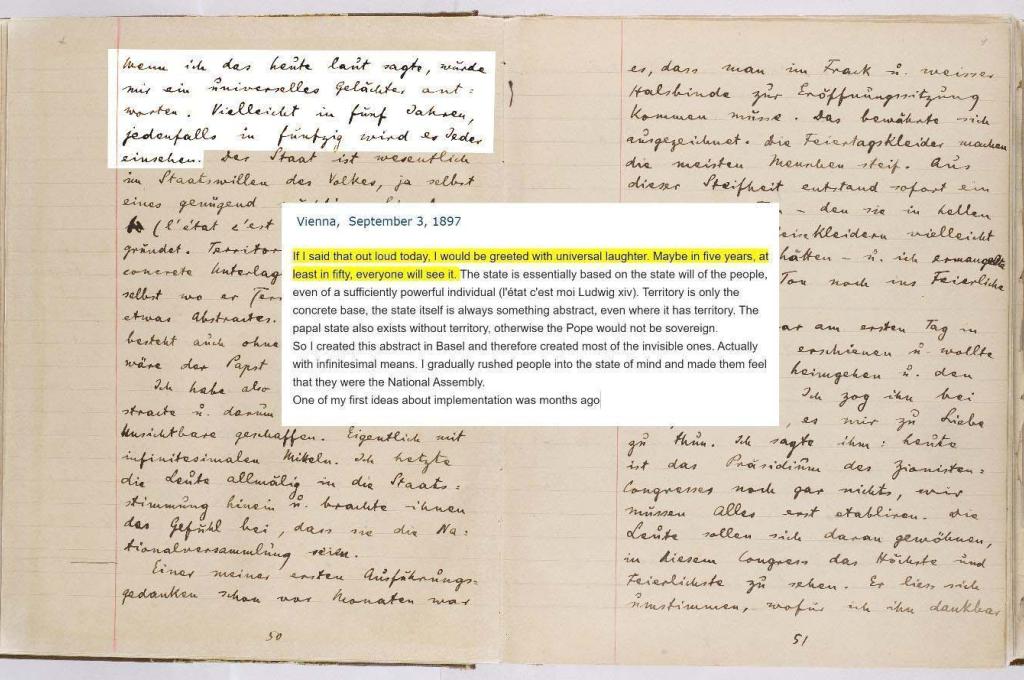 Wenn ich das heute laut sagte, würde
mir ein universelles Gelächter ant=
worten. Vielleicht in fünf Jahren,
jedenfalls in fünfzig wird es Jeder
einsehen. Der Staat ist wesentlich
im Staatswillen des Volkes, ja selbst
eines genügend
(l'état c'est
gründet. Territor
concrete Unterlag
selbst wo er Ter
etwas Abstractes.
besteht auch ohne
wäre der Papst
Ich habe also
stracte u. darum
Unsichtbare geschaffen. Eigentlich mit
infinitesimalen Mitteln. Ich hetzte
die Leute allmälig in die Staats=
stimmung hinein u. brachte ihnen
das Gefühl bei, dass sie die Na=
tionalversammlung seien.
Einer meiner ersten Ausführungs=
gedanken schon vor Monaten war
50
Vienna, September 3, 1897
If I said that out loud today, I would be greeted with universal laughter. Maybe in five years, at
least in fifty, everyone will see it. The state is essentially based on the state will of the people,
even of a sufficiently powerful individual (l'état c'est moi Ludwig xiv). Territory is only the
concrete base, the state itself is always something abstract, even where it has territory. The
papal state also exists without territory, otherwise the Pope would not be sovereign.
So I created this abstract in Basel and therefore created most of the invisible ones. Actually
with infinitesimal means. I gradually rushed people into the state of mind and made them feel
that they were the National Assembly.
One of my first ideas about implementation was months ago
es, dass man im Frack u. weisser
Halsbinde zur Eröffnungssitzung
kommen müsse. Das bewährte sich
ausgezeichnet. Die Feiertagskleider machen
die meisten Menschen steif. Aus
dieser Steifheit entstand sofort ein
– den sie in hellen
eisekleidern vielleicht
hätten – u. ich ermangelte
Ton noch ins Feierliche
ar am ersten Tag in
erschienen u. wollte
heimgehen u. den
Ich zog ihn bei
, es mir zu Liebe
zu thun. Ich sagte ihm: heute
ist das Präsidium des Zionisten=
Congresses noch gar nichts, wir
müssen Alles erst etabliren. Die
Leute sollen sich daran gewöhnen,
in diesem Congress das Höchste und
Feierlichste zu sehen. Er liess sich
umstimmen, wofür ich ihm dankbar
51